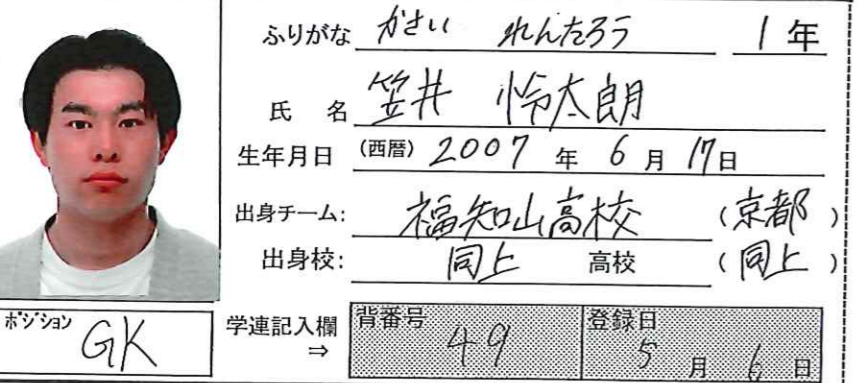 ふりがな かさい れんたろう 1年
氏 名 笠井 怜太朗
生年月日 (西暦) 2007 年 6 月 17日
出身チーム: 福知山高校 (京都)
出身校: 同上 高校 (同上)
ポジション GK
学連記入欄 ⇒ 背番号 49 登録日 5 月 6 日